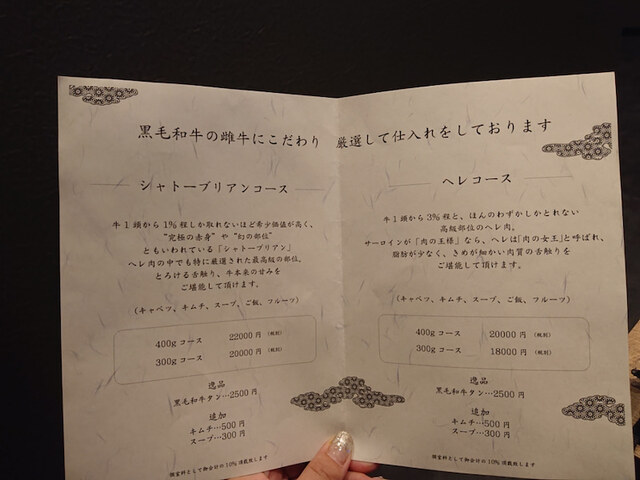 黒毛和牛の雌牛にこだわり 厳選して仕入れをしております
シャトーブリアンコース
牛1頭から1%程しか取れないほど希少価値が高く、
"究極の赤身"や"幻の部位"
ともいわれている「シャトーブリアン」
ヘレ肉の中でも特に厳選された最高級の部位。
とろける舌触り、牛本来の甘みを
ご堪能して頂けます。
(キャベツ、キムチ、スープ、ご飯、フルーツ)
400g コース 22000円 (税別)
300g コース 20000円 (税別)
逸品
黒毛和牛タン…2500円
追加
キムチ…500円
スープ…300円
個室料として御会計の10%頂戴致します
ヘレコース
牛1頭から3%程と、ほんのわずかしかとれない
高級部位のヘレ肉。
サーロインが「肉の王様」なら、ヘレは「肉の女王」と呼ばれ、
脂肪が少なく、きめが細かい肉質の舌触りを
ご堪能して頂けます。
(キャベツ、キムチ、スープ、ご飯、フルーツ)
400g コース 20000円 (税別)
300g コース 18000円 (税別)
逸品
黒毛和牛タン…2500円
追加
キムチ…500円
スープ…300円
個室料として御会計の10%頂戴致します